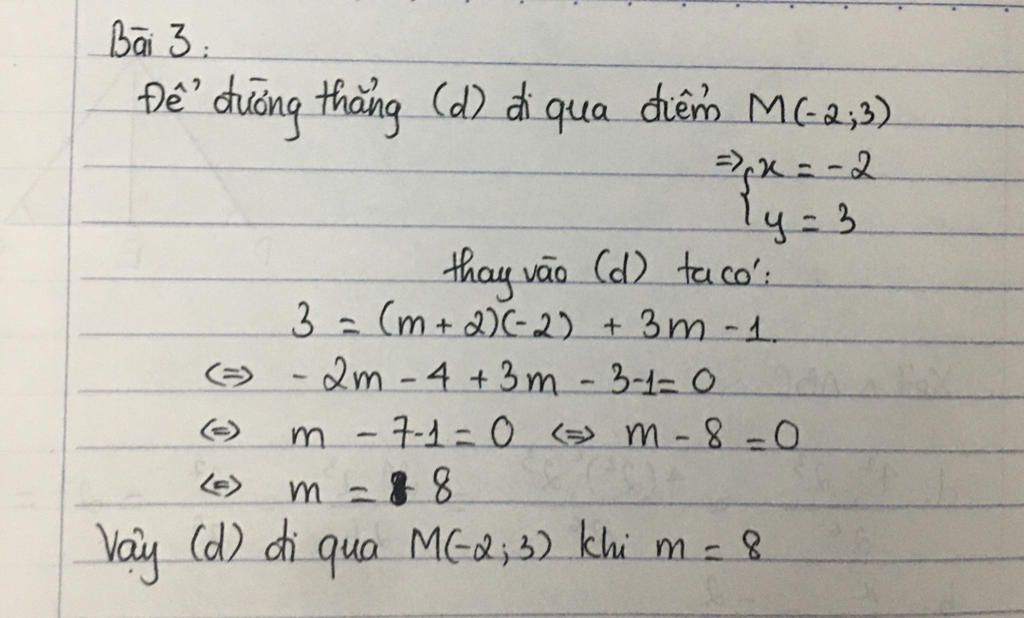 Bài 3:
Để đường thẳng (d) đi qua điểm M(-2;3)
=> { x = -2
y = 3
thay vào (d) ta có:
3 = (m + 2)(-2) + 3m - 1.
<=> - 2m - 4 + 3m - 3-1= 0
<=> m - 7-1 = 0 <=> m - 8 = 0
<=> m = 8
Vậy (d) đi qua M(-2;3) khi m = 8